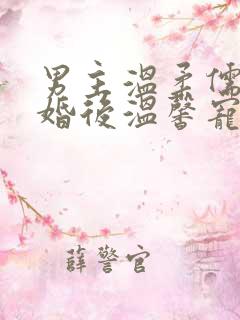 男主溫柔儒
婚後溫馨寵
薛警官